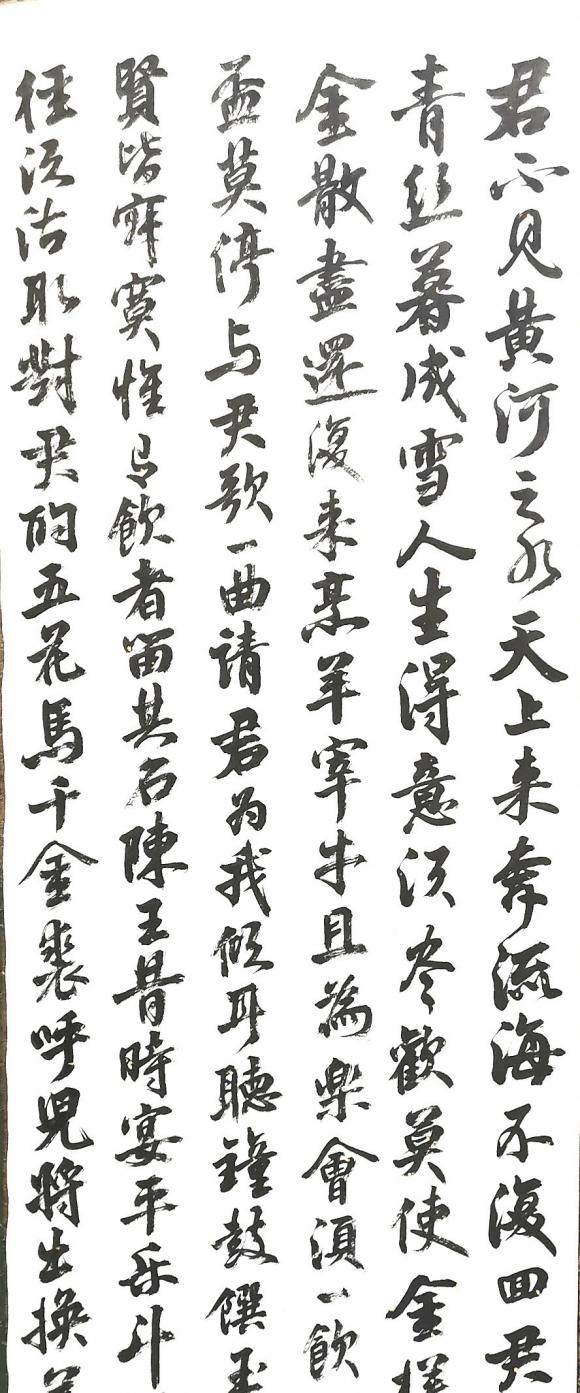 君不見黄河之水天上来奔流海不復回君
青丝暮成雪人生得意须尽歡莫使金樽
金散盡還復来烹羊宰牛且為樂會須一飲
盃莫停与君歌一曲请君为我倾耳聽鐘鼓饌玉
賢皆寂寞惟有飲者留其名陳王昔時宴平乐斗
径须沽取對君酌五花馬千金裘呼兒將出换美